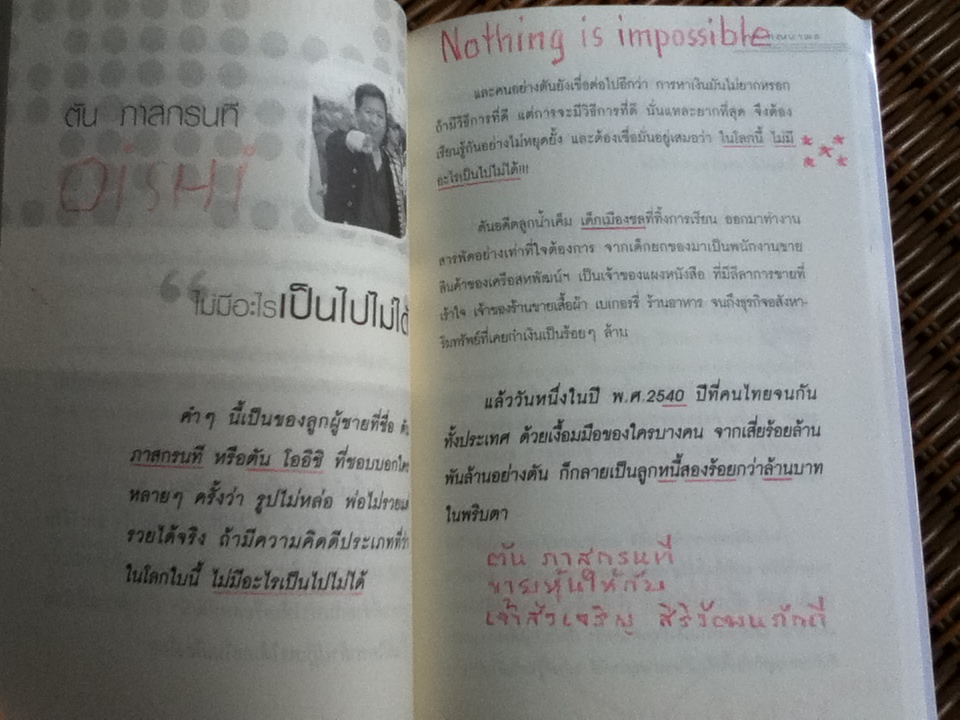 ตัน ภาสกรนที
OiSHi
“ไม่มีอะไรเป็นไปไม่ได้
คำๆ นี้เป็นของลูกผู้ชายที่ชื่อ
ภาสกรนที หรือตัน โออิชิ ที่ชอบบอกใคร
หลายๆ ครั้งว่า รูปไม่หล่อ พ่อไม่รวย
รวยได้จริง ถ้ามีความคิดดีประเภทที่ว่า
ในโลกใบนี้ ไม่มีอะไรเป็นไปไม่ได้
Nothing is impossible
และคนอย่างตันยังเชื่อต่อไปอีกว่า การหาเงินมันไม่ยากหรอก
ถ้ามีวิธีการที่ดี แต่การจะมีวิธีการที่ดี นั่นแหละยากที่สุด จึงต้อง
เรียนรู้กันอย่างไม่หยุดยั้ง และต้องเชื่อมั่นอยู่เสมอว่า ในโลกนี้ ไม่มี
อะไรเป็นไปไม่ได้!!!
ตันอดีตลูกน้ำเค็ม เด็กเมืองชลที่ทิ้งการเรียน ออกมาทำงาน
สารพัดอย่างเท่าที่ใจต้องการ จากเด็กยกของมาเป็นพนักงานขาย
สินค้าของเครือสหพัฒน์ฯ เป็นเจ้าของแผงหนังสือ ที่มีลีลาการขายที่
เร้าใจ เจ้าของร้านขายเสื้อผ้า เบเกอรรี่ ร้านอาหาร จนถึงธุรกิจอสังหา-
ริมทรัพย์ที่เคยกำเงินเป็นร้อยๆ ล้าน
แล้ววันหนึ่งในปี พ.ศ.2540 ปีที่คนไทยจนกัน
ทั้งประเทศ ด้วยเงื้อมมือของใครบางคน จากเสี่ยร้อยล้าน
พันล้านอย่างตัน ก็กลายเป็นลูกหนี้สองร้อยกว่าล้านบาท
ในพริบตา
ตัน ภาสกรนที
ขายหุ้นให้กับ
เจ้าสัวเจริญ สิริวัฒนภักดี